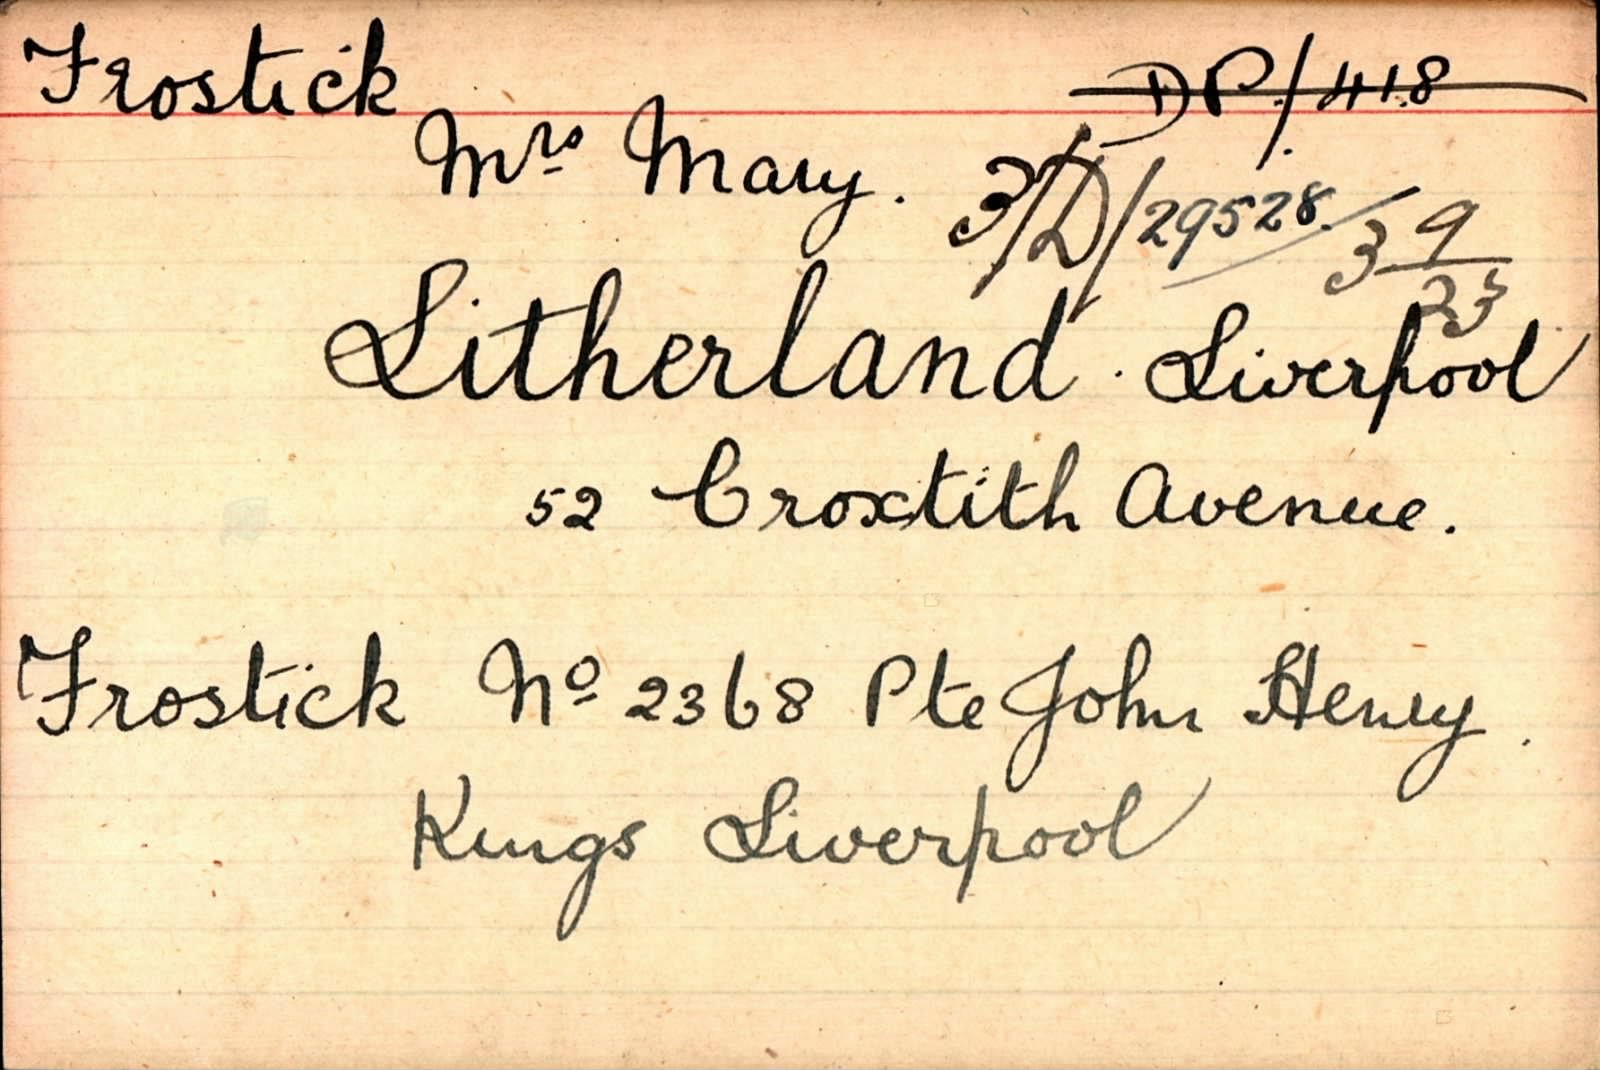 Frostick
DP/418
Mrs Mary.
3/D/29528. 3 9/23
Litherland. Liverpool
52 Croxtith Avenue.
Frostick No 2368 Pte John Henry.
Kings Liverpool